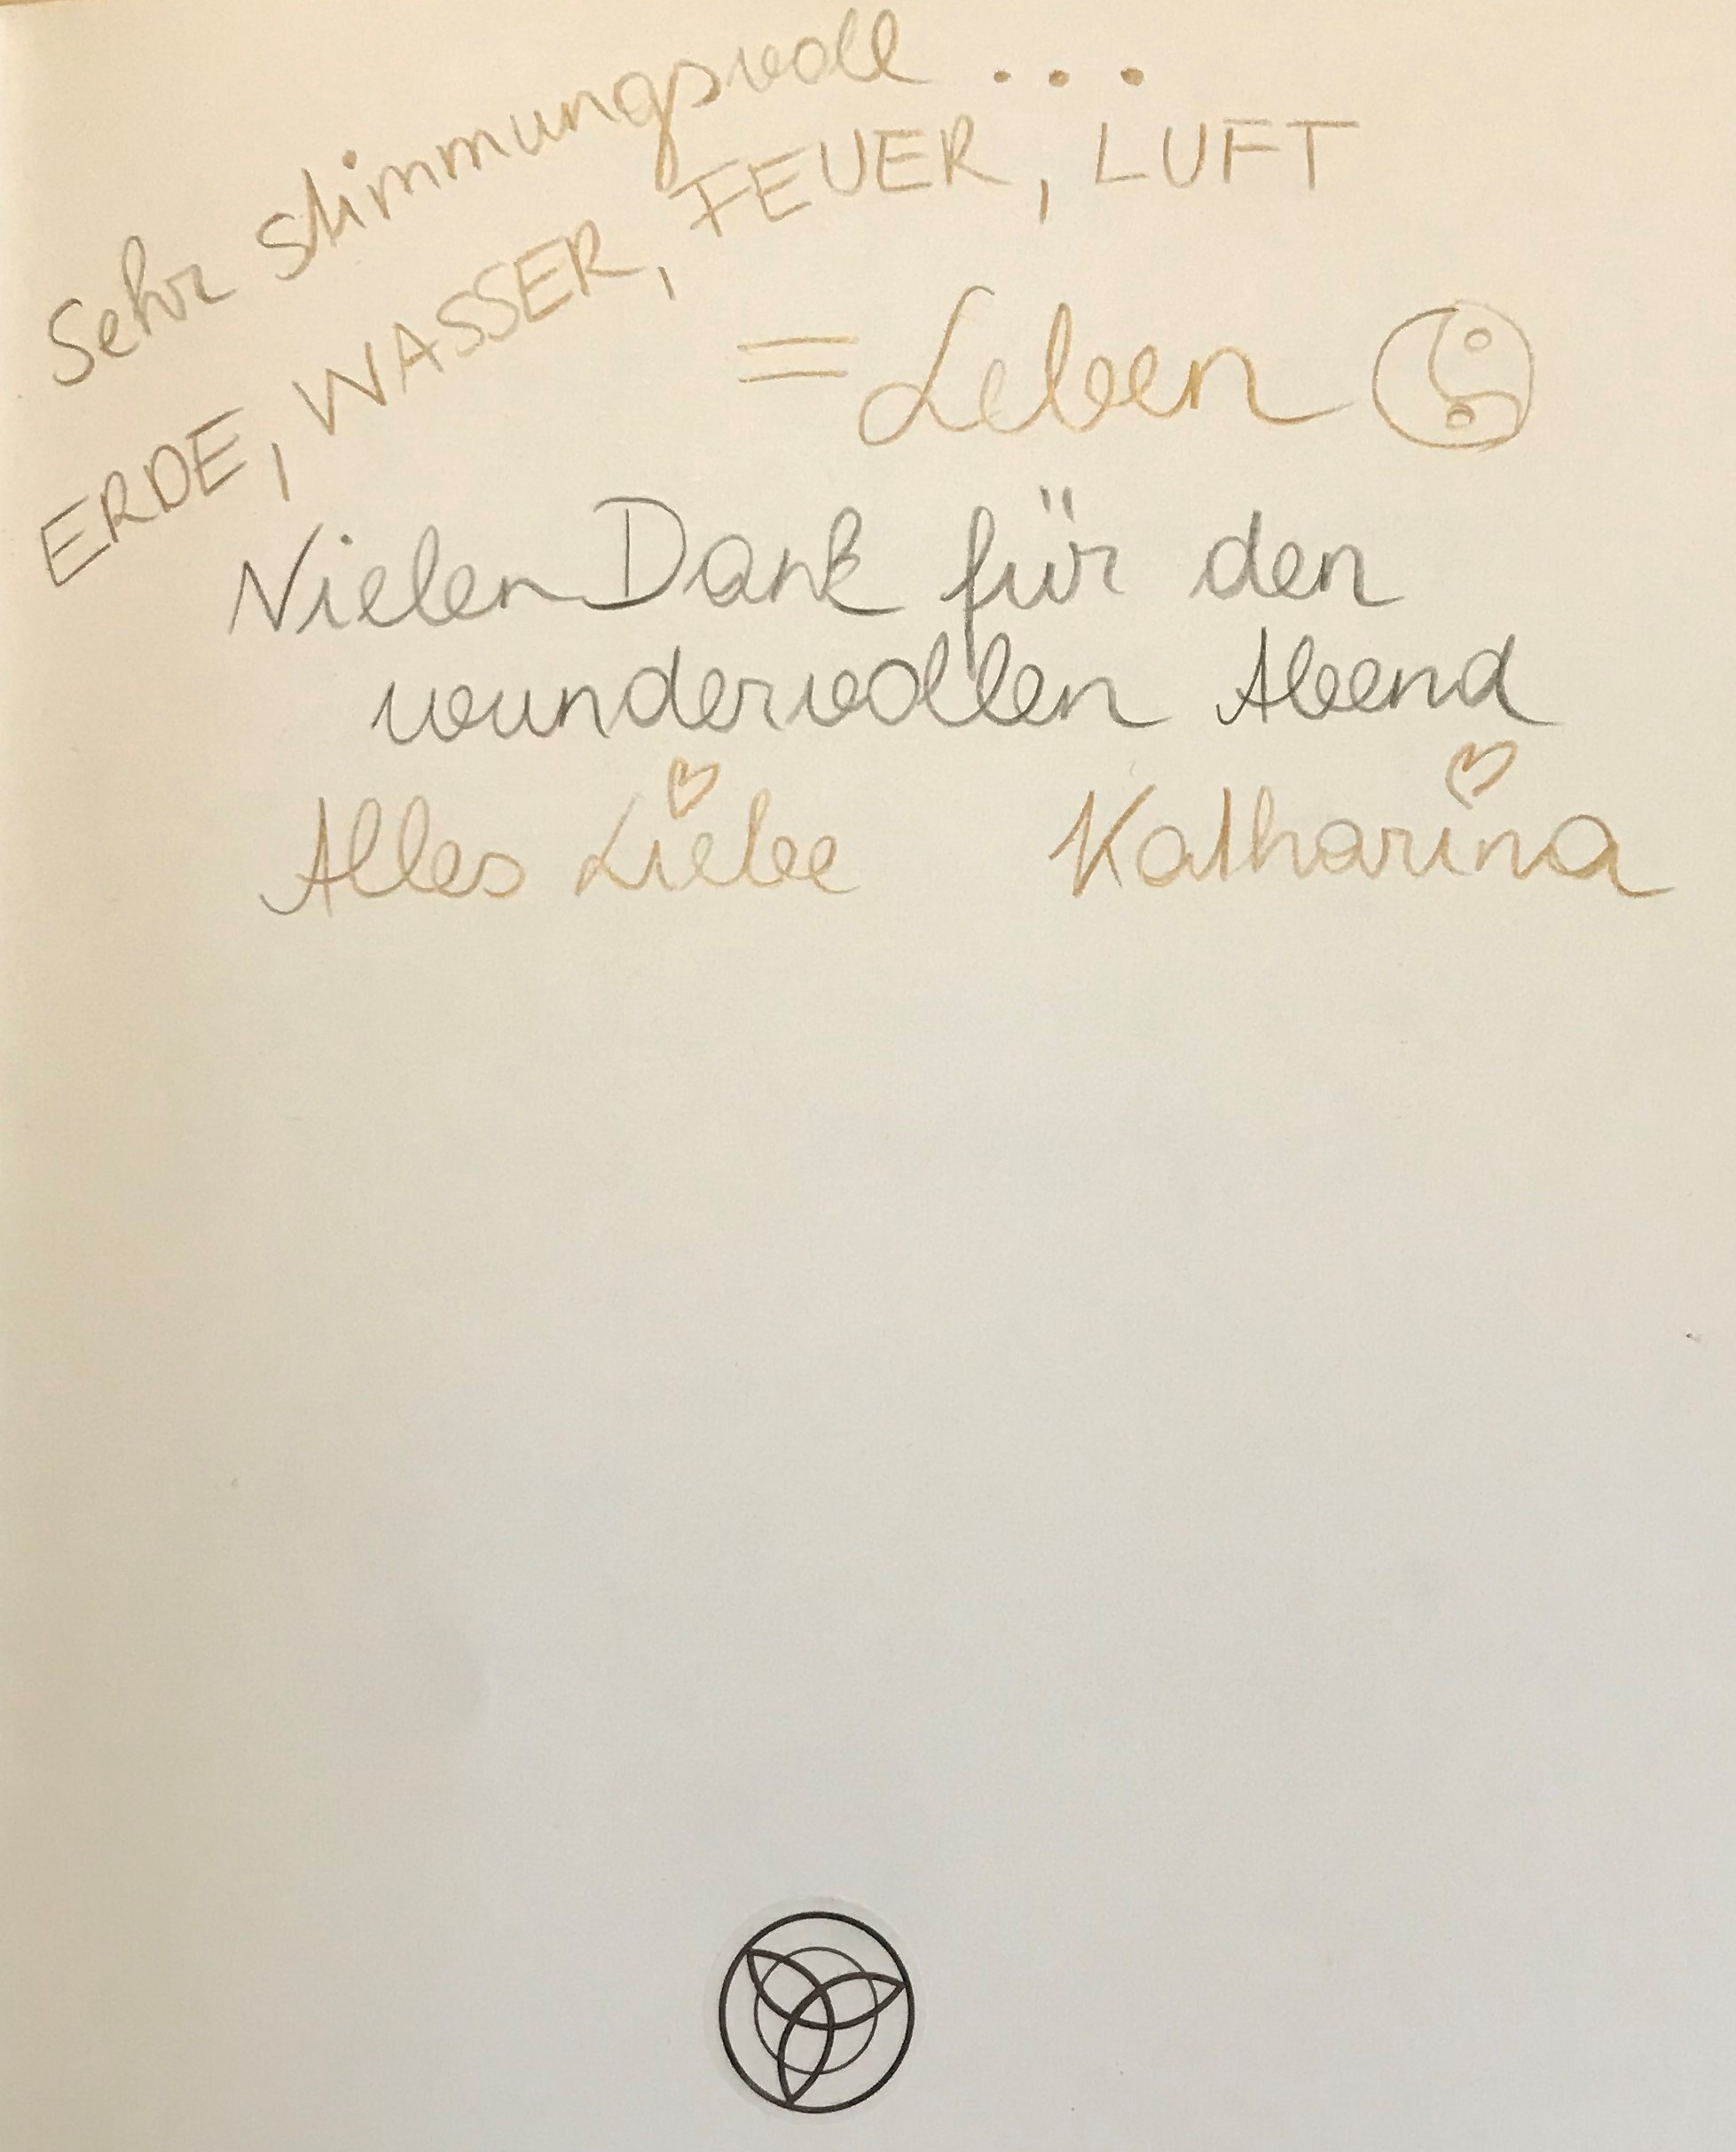 Sehr stimmungsvoll ...
ERDE, WASSER, FEUER, LUFT
= Leben
Vielen Dank für den
wundervollen Abend
Alles Liebe Katharina